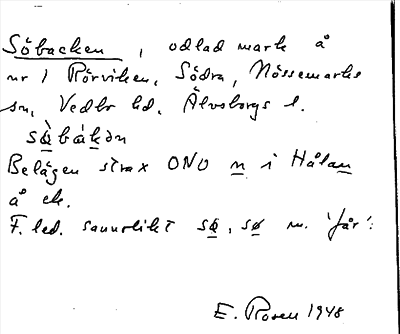 Söbacken, odlad mark å
nr 1 Rörviken, Södra, Nössemarks
sn, Vedbo hd. Älvsborgs l.
sø̀bákən
Belägen strax ONO n i Hålan
å ek.
F. led. sannolikt sø, sø m. 'får':
E. Rosen 1948